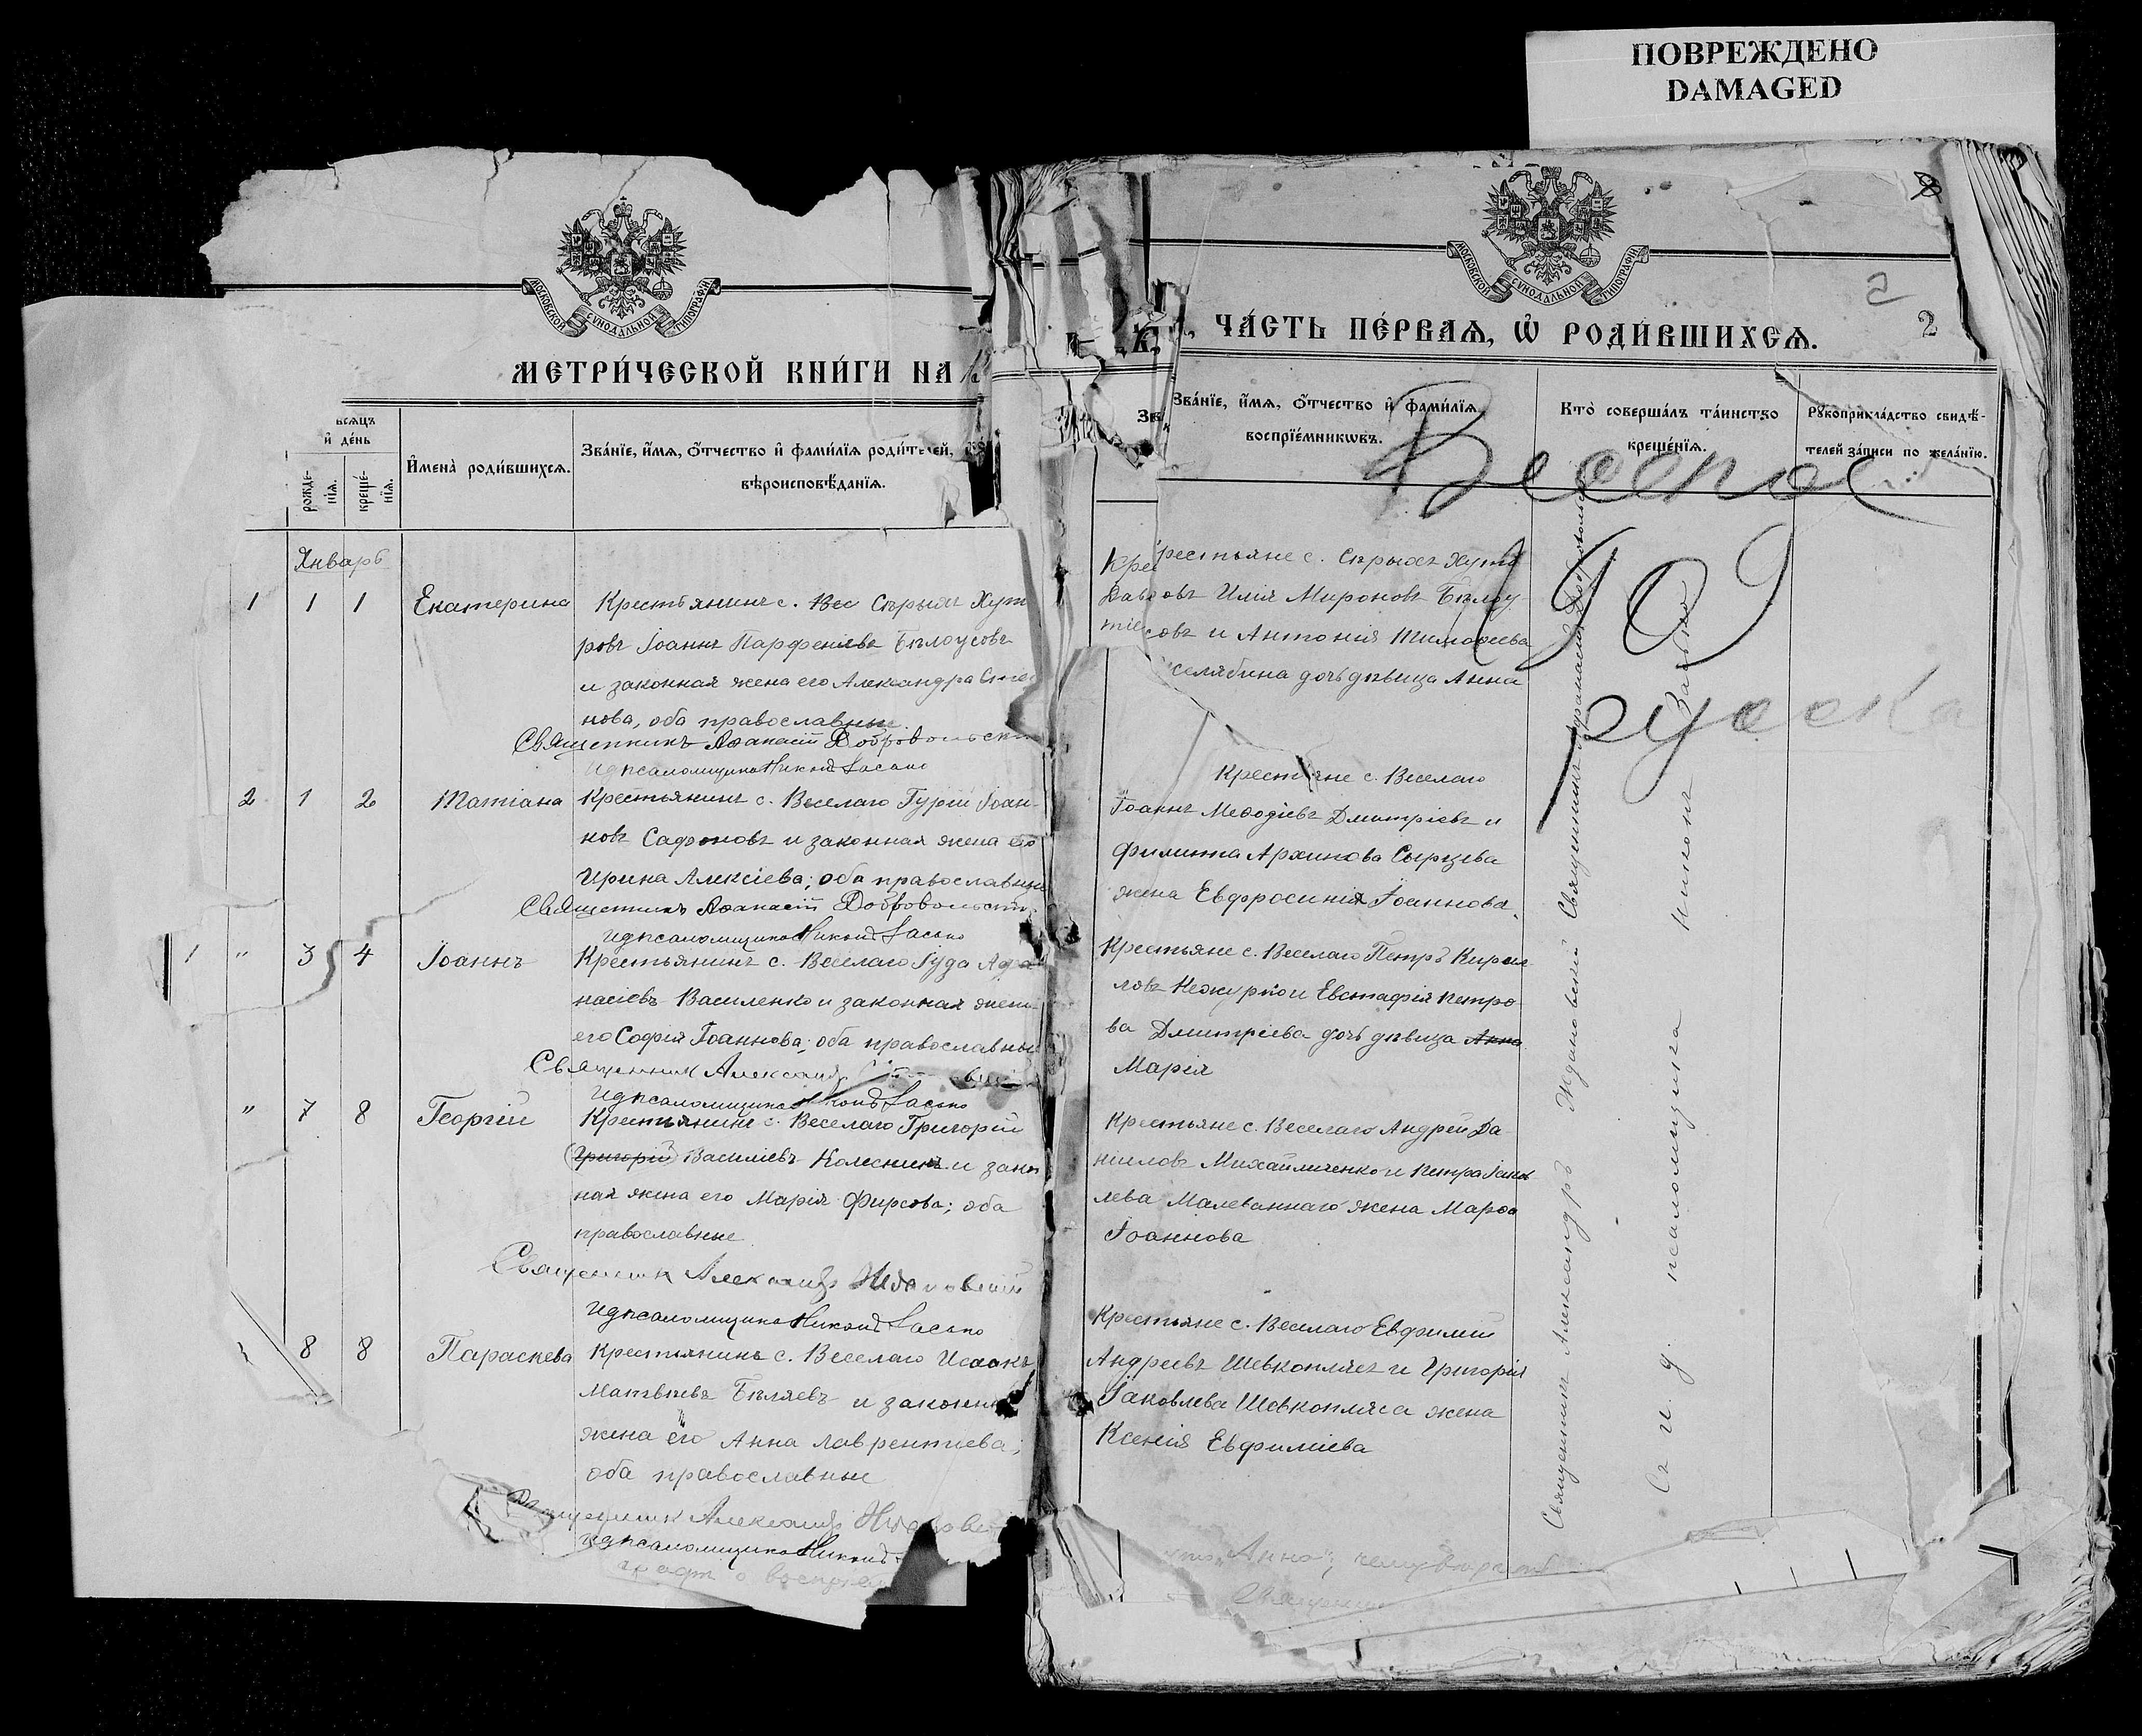 ПОВРЕЖДЕНО
DAMAGED
МОСКОВСКОЙ СѴНОДАЛЬНОЙ ТИПОГРАФІИ
МЕТРИ́ЧЕСКОЙ КНИ́ГИ НА
ѣсяцъ
и҆ де́нь
рожде-
нїѧ.
креще́-
нїѧ.
И҆мена̀ роди́вшихсѧ.
Зва́нїе, и҆́мѧ, ѻ҆́тчество и҆ фами́лїѧ роди́телей,
вѣроисповѣ́данїѧ.
Январь
1 1 1 Екатерина
Крестьянинъ с. Вес Сѣрыхъ Хут
ровъ Іоаннъ Парфеніевъ Бѣлоусовъ
и законная жена его Александра
нова, оба православные
Священникъ Аѳанасій Добровольскі
И д псаломщика Никонъ
2 1 2 Татіана
Крестьянинъ с. Веселаго Гурій Іоан-
новъ Сафоновъ и законная жена его
Ирина Алексіева; оба православные
Священникъ Аѳанасій Добровольскі
И д псаломщика Никонъ
1 " 3 4 Іоаннъ
Крестьянинъ с. Веселаго Іуда Аѳа
насіевъ Василенко и законная жена
его Софія Іоаннова; оба православные
Священник Александр
И д псаломщика Никонъ
" 7 8 Георгій
Крестьянинъ с. Веселаго Григорій
(Григорій) Василіевъ Колесникъ и закон
ная жена его Марія Фирсова; оба
православные
Священник Александръ Ждановскій
И д псаломщика Никонъ
8 8 Параскева
Крестьянинъ с. Веселаго Исаакъ
Матвѣевъ Бѣляевъ и законна
жена его Анна Лаврентіева;
оба православные
Священник Александръ
И д псаломщика Никонъ
МОСКОВСКОЙ СѴНОДАЛЬНОЙ ТИПОГРАФІИ
2
2
, ЧА́СТЬ ПЕ́РВАѦ, Ѡ҆ РОДИ́ВШИХСѦ.
Зва́нїе, и҆́мѧ, ѻ҆́тчество и҆ фами́лїѧ
воспрїе́мникѡвъ.
Кто̀ соверша́лъ та́инство
креще́нїѧ.
Рꙋкоприкла́дство свидѣ́-
телей за́писи по жела́нїю.
Веселое
1909
рестьяне с. Сѣрыхъ Хуто
овъ Илія Мироновъ Бѣлоу
совъ и Антонія Тимоѳеева
селябина дочь дѣвица Анна
Крестьяне с. Веселаго
Іоаннъ Меѳодіевъ Дмитріевъ и
Филиппа Архипова Сырцева
жена Евфросинія Іоаннова.
Крестьяне с. Веселаго Петръ Кирил
ловъ и Евстафія Петро
ва Дмитріева дочь дѣвица Анна
Марія
Крестьяне с. Веселаго Андрей Да-
ніиловъ Михайличенко и Петра Іаков
лева Малеваннаго жена Марѳа
Іоаннова
Крестьяне с. Веселаго Евфимій
Андреевъ Шевкоплясъ и Григорія
Іаковлева Шевкопляса жена
Ксенія Евфиміева
Священникъ Александръ Ждановскій Священникъ
Съ и. д. псаломщика Никонъ